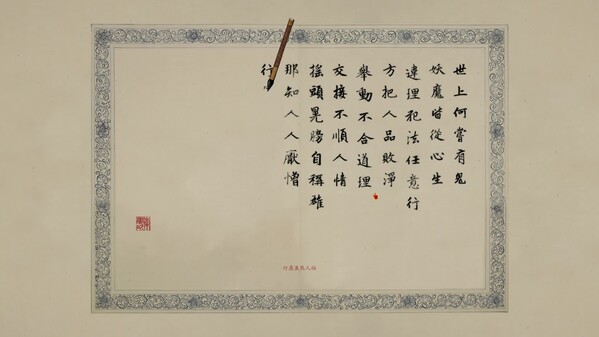 世上何嘗有鬼
妖魔皆從心生
違理犯法任意行
方把人品敗淨
舉動不合道理
交接不順人情
搖頭晃膀自稱雄
那知人人厭憎
行